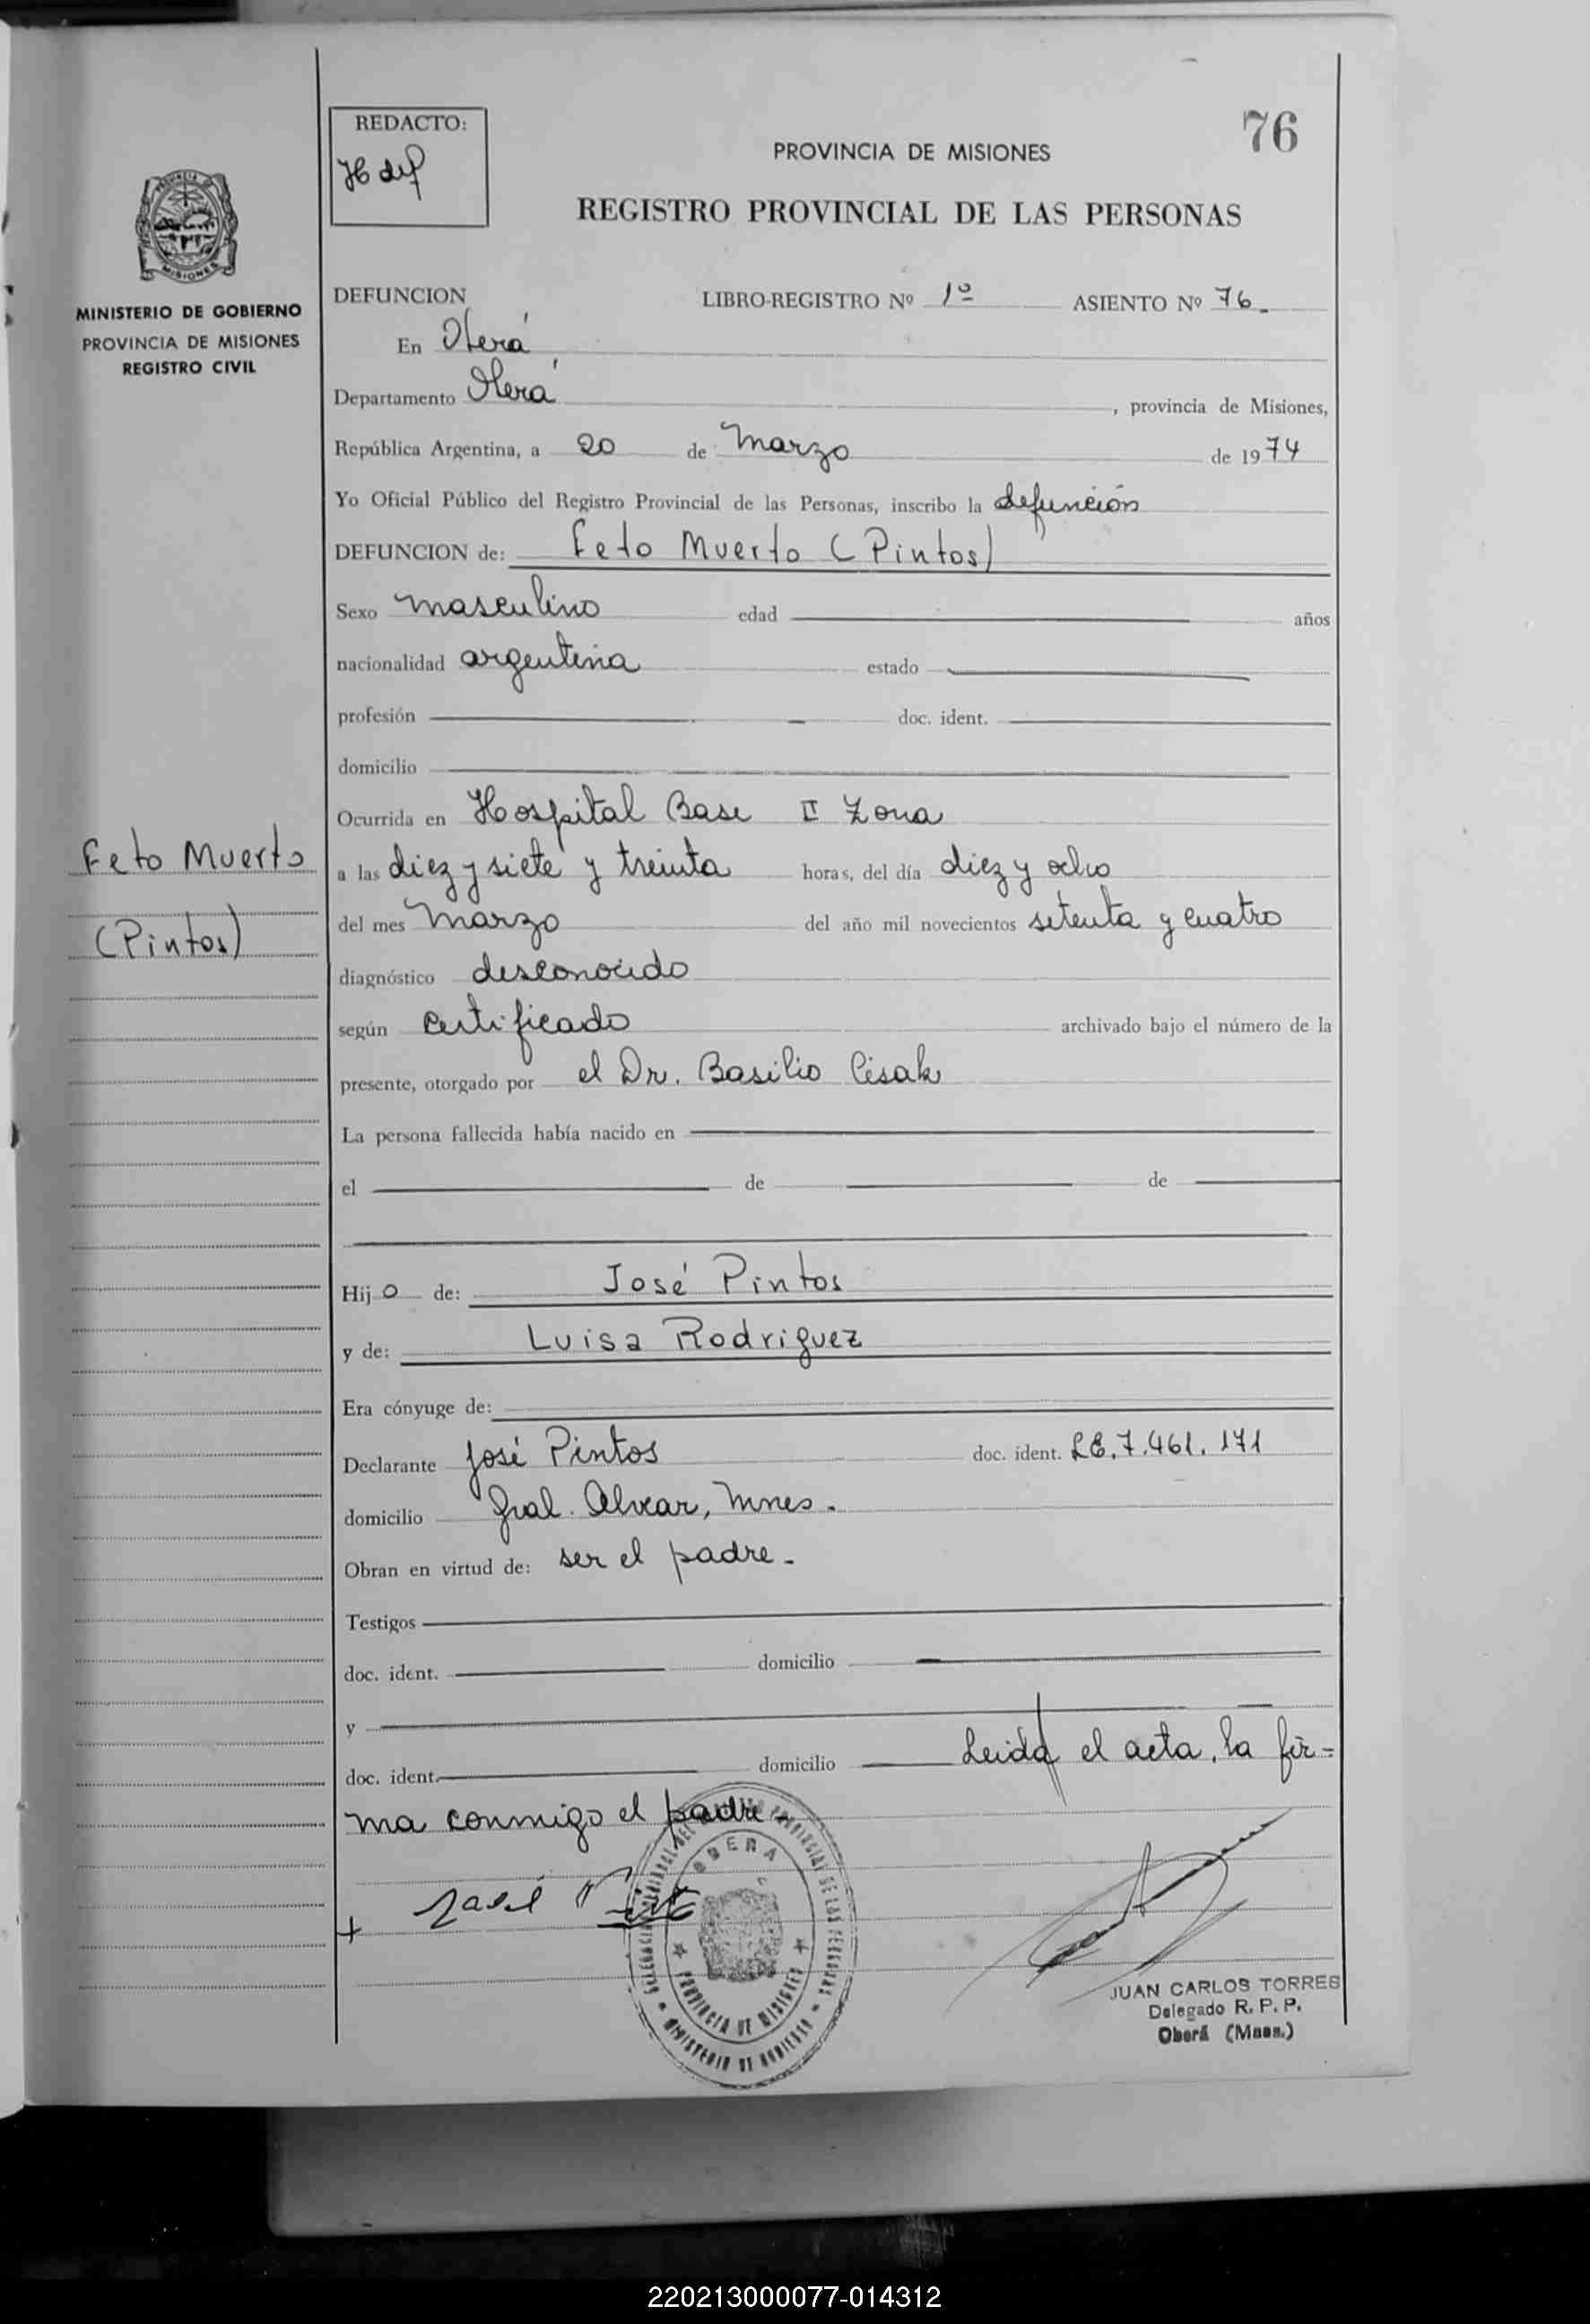 REDACTO:
76
PROVINCIA DE MISIONES
REGISTRO PROVINCIAL DE LAS PERSONAS
PROVINCIA DE
MISIONES
MINISTERIO DE GOBIERNO
PROVINCIA DE MISIONES
REGISTRO CIVIL
DEFUNCION LIBRO-REGISTRO Nº 1º ASIENTO Nº 76
En Oberá
Departamento Oberá, provincia de Misiones,
República Argentina, a 20 de Marzo de 1974
Yo Oficial Público del Registro Provincial de las Personas, inscribo la defunción
DEFUNCION de: Feto Muerto (Pintos)
Sexo masculino edad años
nacionalidad argentina estado
profesión doc. ident.
domicilio
Ocurrida en Hospital Base II Zona
Feto Muerto
(Pintos)
a las diez y siete y treinta horas, del día diez y ocho
del mes Marzo del año mil novecientos setenta y cuatro
diagnóstico desconocido
según certificado archivado bajo el número de la
presente, otorgado por el Dr. Basilio Cisak
La persona fallecida había nacido en
el de de
Hijo de: José Pintos
y de: Luisa Rodriguez
Era cónyuge de:
Declarante José Pintos doc. ident. L.E. 7.461.171
domicilio Gral. Alvear, Mnes.
Obran en virtud de: ser el padre.
Testigos
doc. ident. domicilio
y
doc. ident. domicilio Leida el acta, la fir=
ma conmigo el padre.-
OBERA
PROVINCIA DE MISIONES
MINISTERIO DE GOBIERNO
José
JUAN CARLOS TORRES
Delegado R. P. P.
Oberá (Mnes.)
220213000077-014312